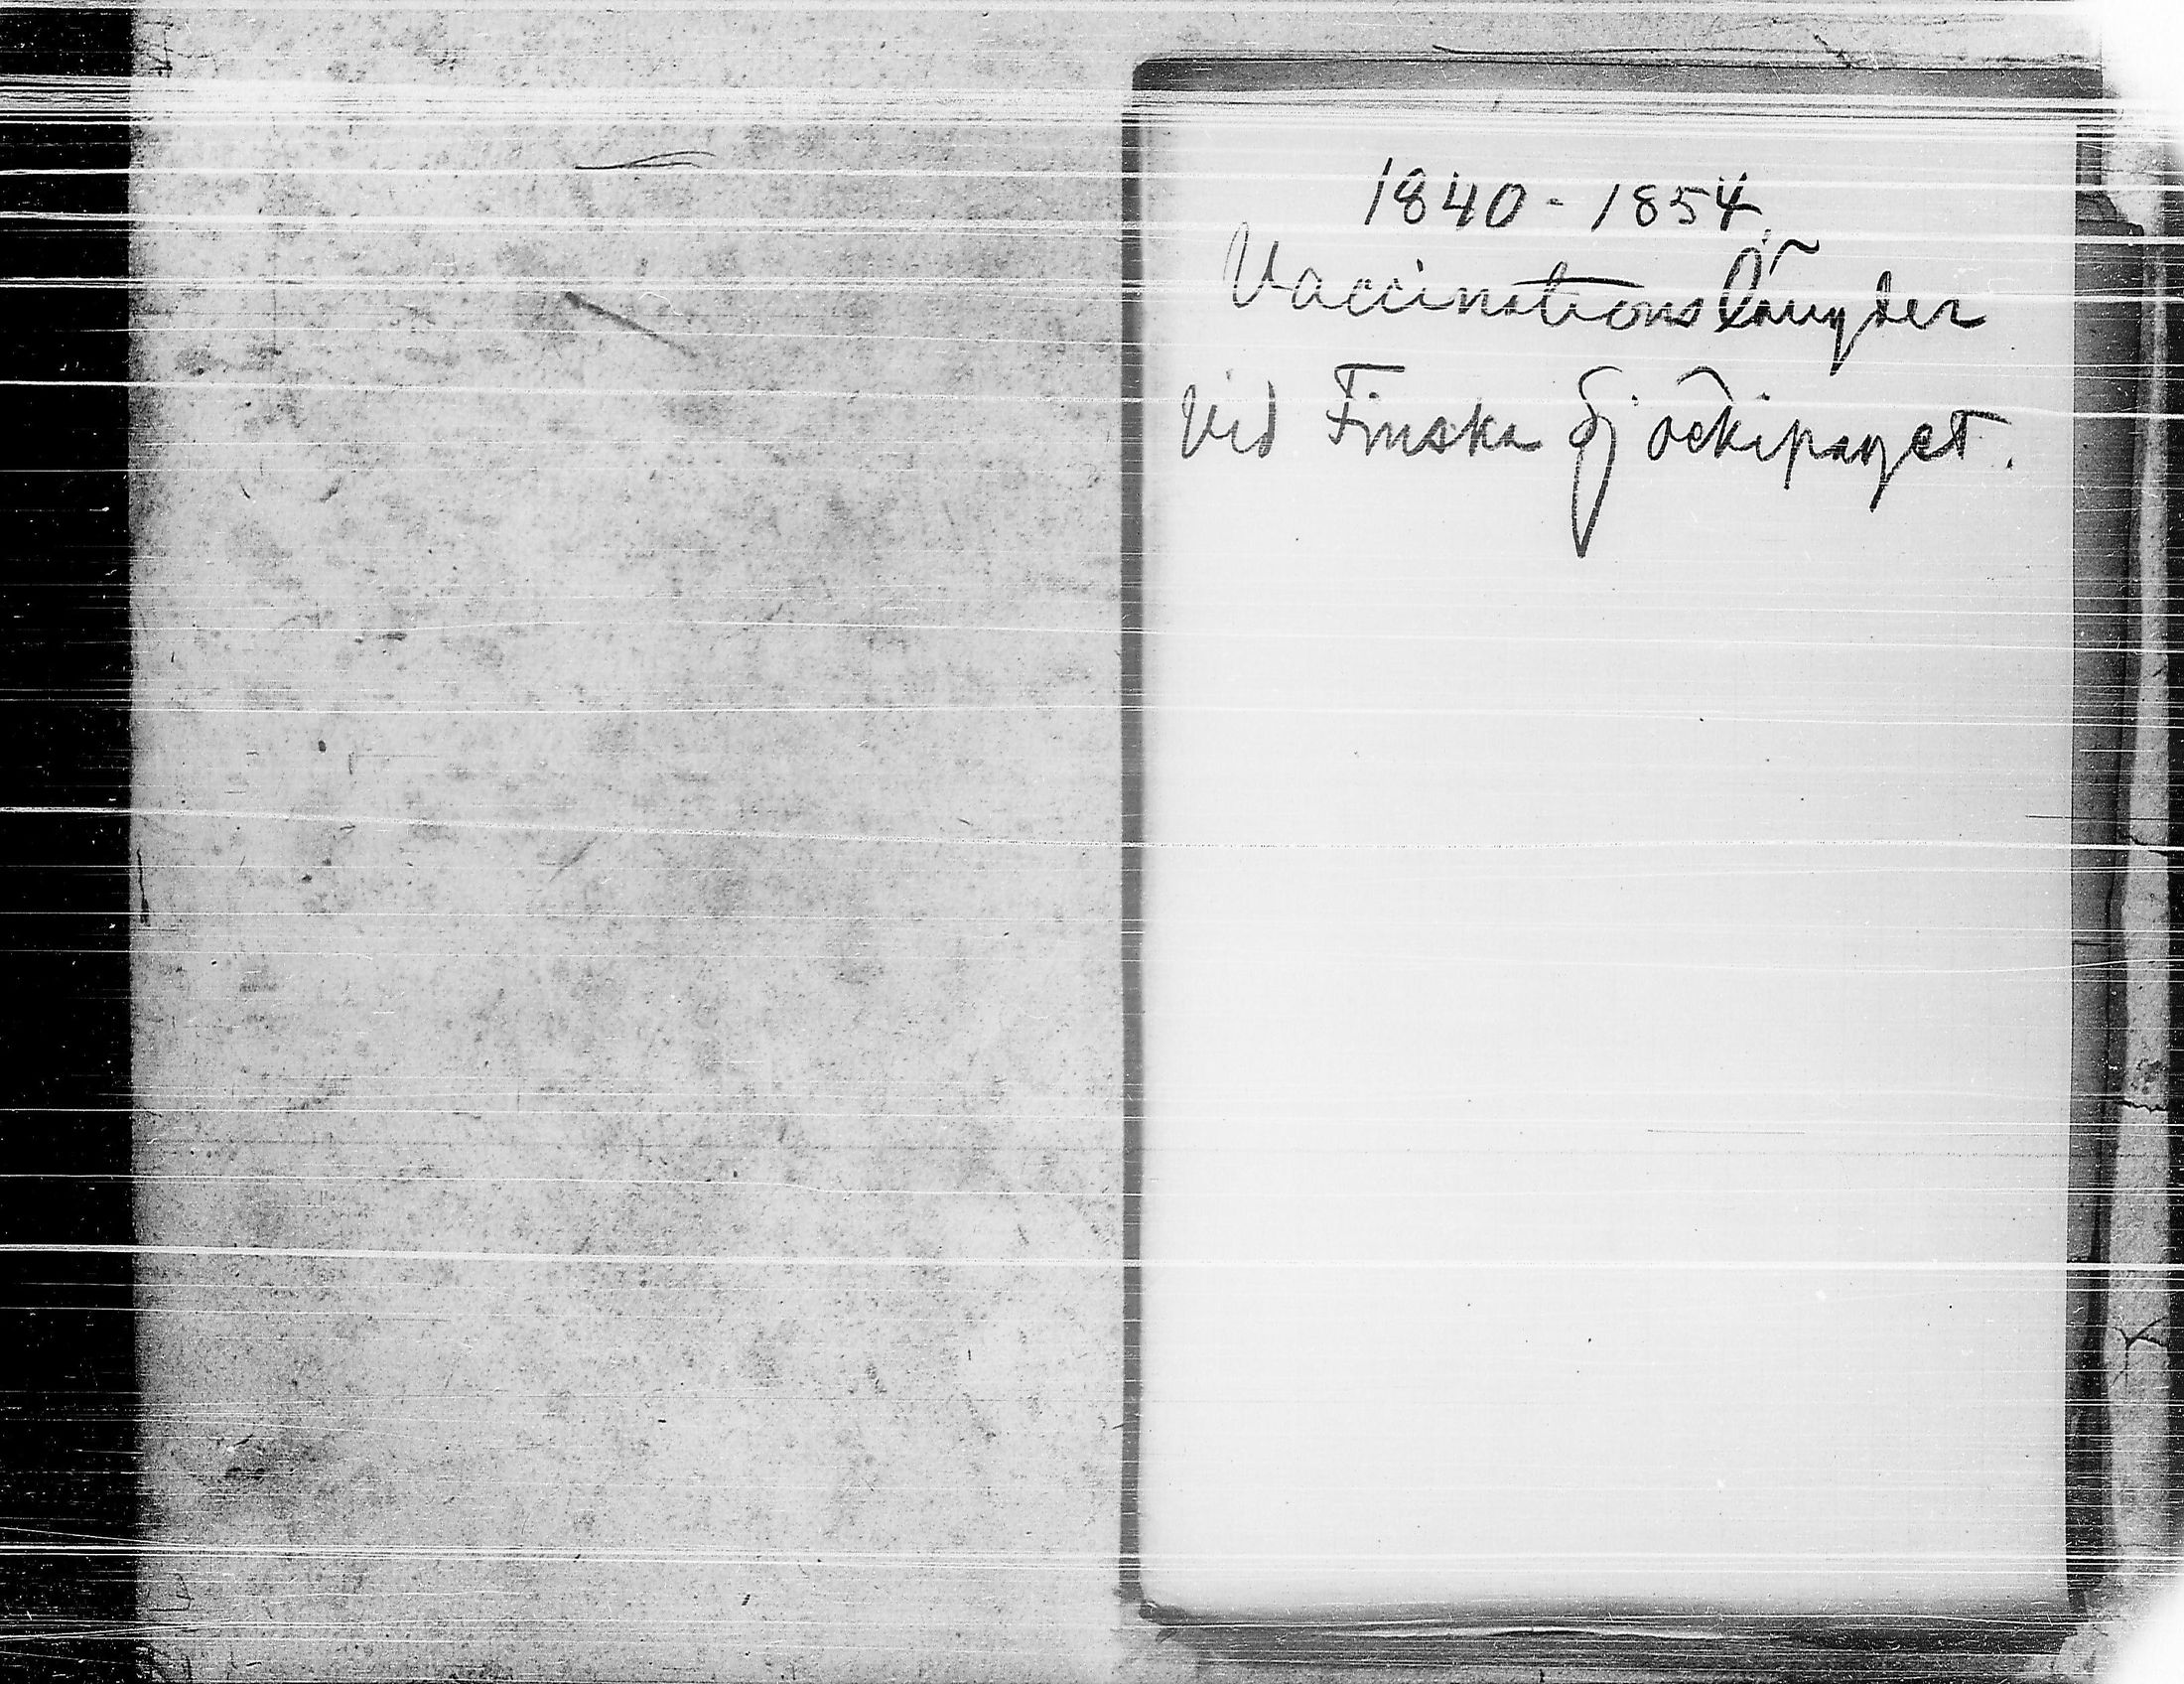 1840 - 1854.
Vaccinationslängder
vid Finska Sjöekipaget.